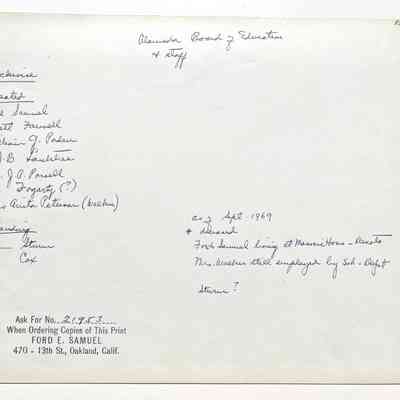 Alameda Board of Education
& Staff
Clockwise
Seated
Samuel
Farwell
J.
J.B.
J.A. Powell
Fogarty (?)
Anita Peterson (Walker)
Standing
Sturm
Cox
as of Sept 1969
+ deceased
Ford Samuel living at Masonic Home -
Mrs. Walker still employed by Sch - Dept
Sturm ?
Ask For No. 21953
When Ordering Copies of This Print
FORD E. SAMUEL
470 - 13th St., Oakland, Calif.